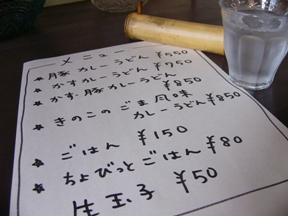 メニュー
★ 豚カレーうどん ¥550
★ かすカレーうどん ¥750
★ かす・豚カレーうどん ¥850
★ きのこのごま風味
カレーうどん ¥850
★ ごはん ¥150
★ ちょびっとごはん ¥80
生玉子 ¥50